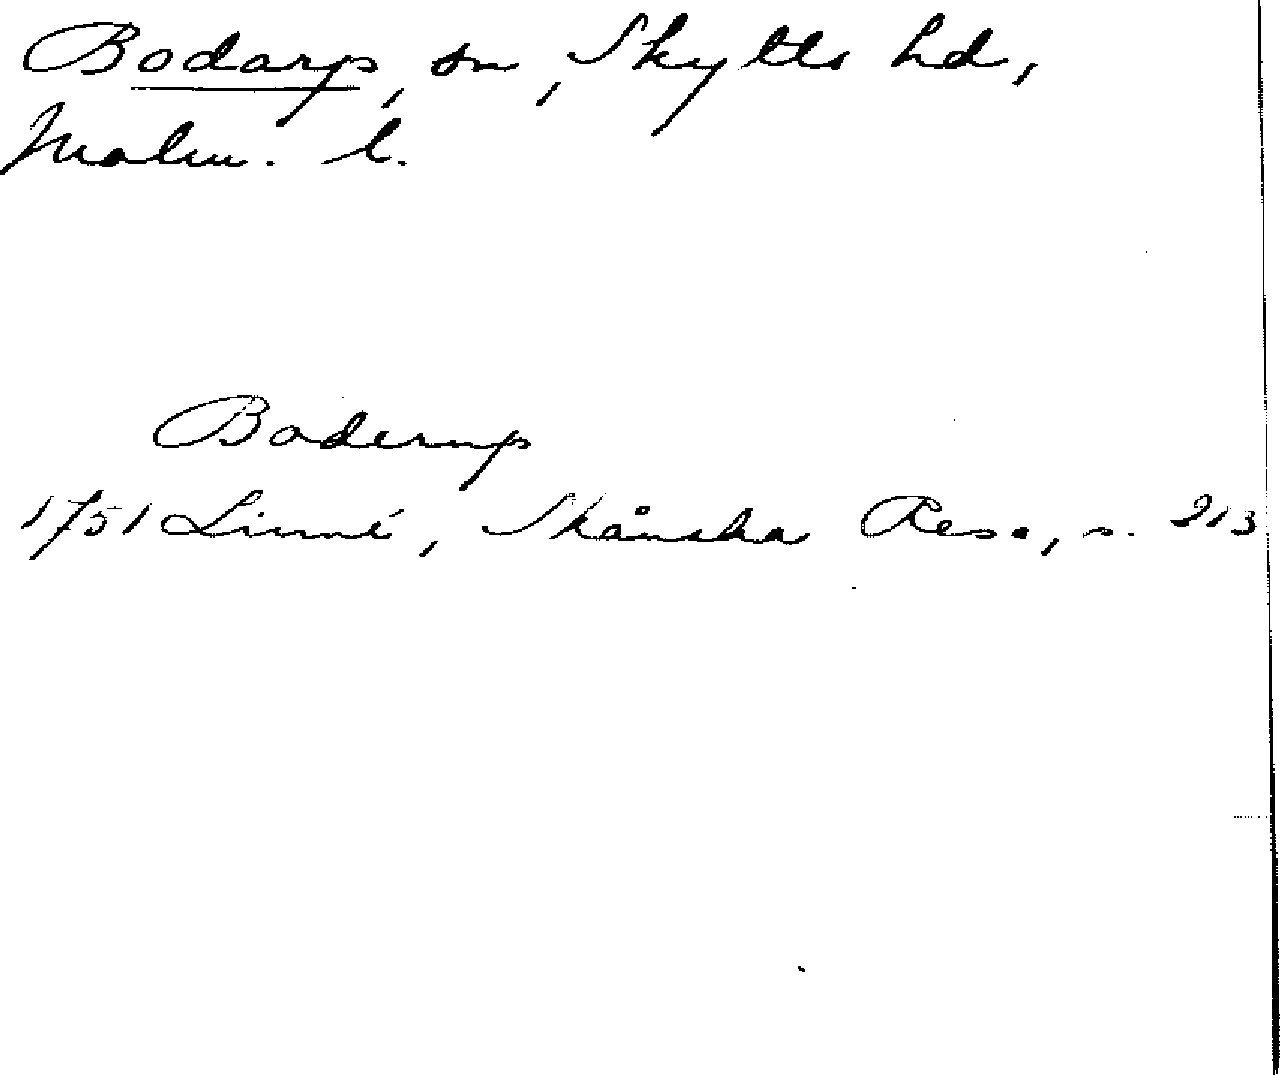 Bodarp, sn, Skytts hd,
Malm. l.
Boderup
1751 Linné, Skånska Resa, s. 213